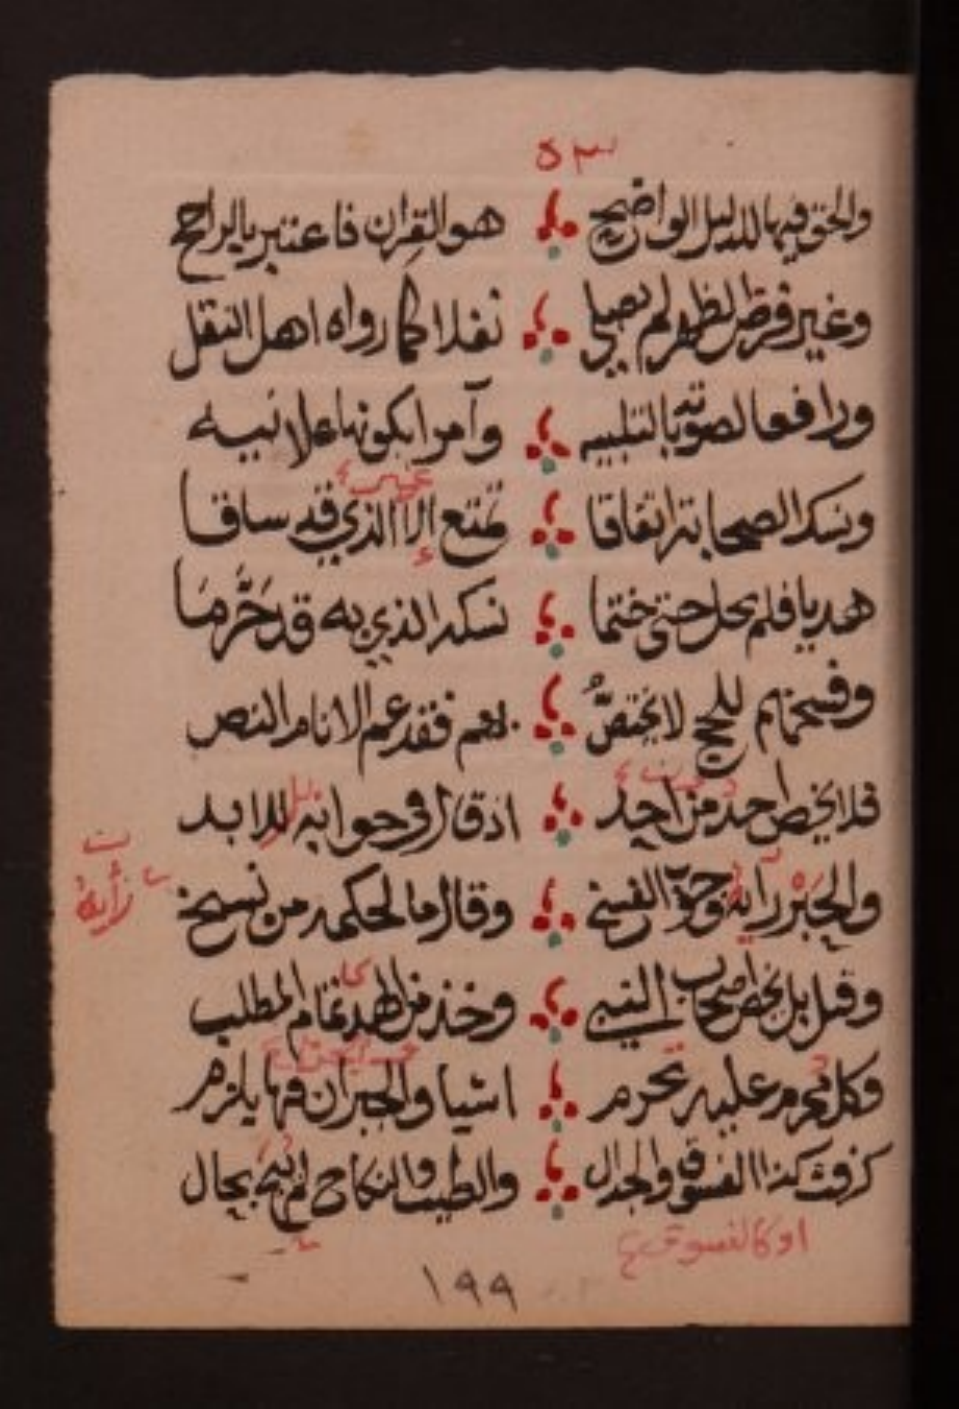 ٥٣
والحق فيها للدليل الواضح هو القران فاعتبر بالراجح
وغير فرض الظهر لم يصلي نفلا كما رواه اهل النقل
ورافعا لصوته بالتلبيه وآمرا بكونها علانيه
غير
ونسك الصحابة اتفاقا تمتع إلا الذي قد ساقا
هديا فلم يحل حتى ختما نسكه الذي به قد حَرَّمَا
وفسخهم للحج لا يختصُّ بهم فقد عم الانام النص
فلا يخص احد من احد اذ قال في جوابه بل للابد
والحَبْر رآية وجوب الفسخ وقال ما لحكمه من نسخ
رأيه
وقيل بل يخص اصحاب النبي وخذ من الهدي تمام المطلب
وكل محرم عليه تحرم اشيا والجبران فيها يلزم
كرفث كذا الفسوق والجدال والطيب والنكاح لم يبح بحال
او كالفسوق
١٩٩